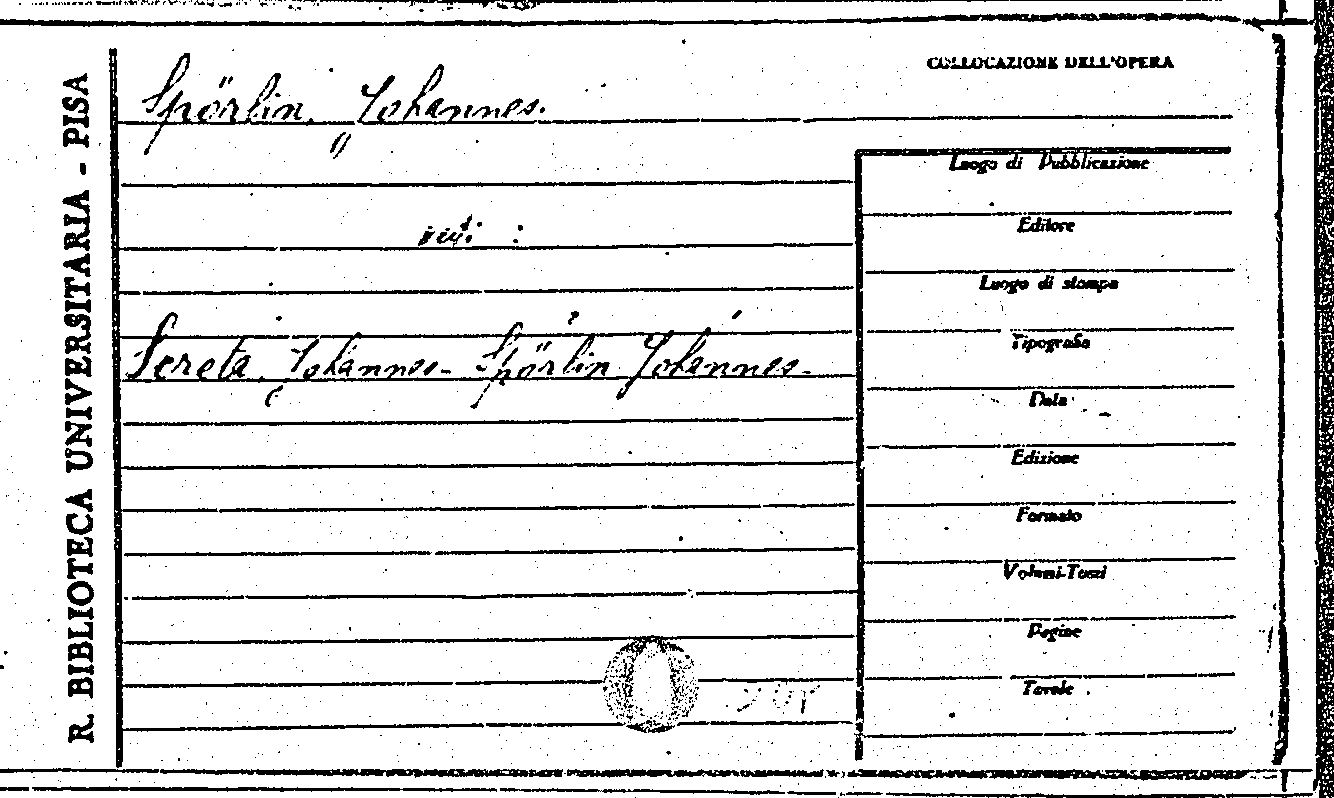 R. BIBLIOTECA UNIVERSITARIA - PISA
COLLOCAZIONE DELL'OPERA
Spörlin, Johannes.
vedi :
Sereta, Johannes - Spörlin Johannes -
Luogo di Pubblicazione
Editore
Luogo di stampa
Tipografia
Data
Edizione
Formato
Volumi-Tomi
Pagine
Tavole